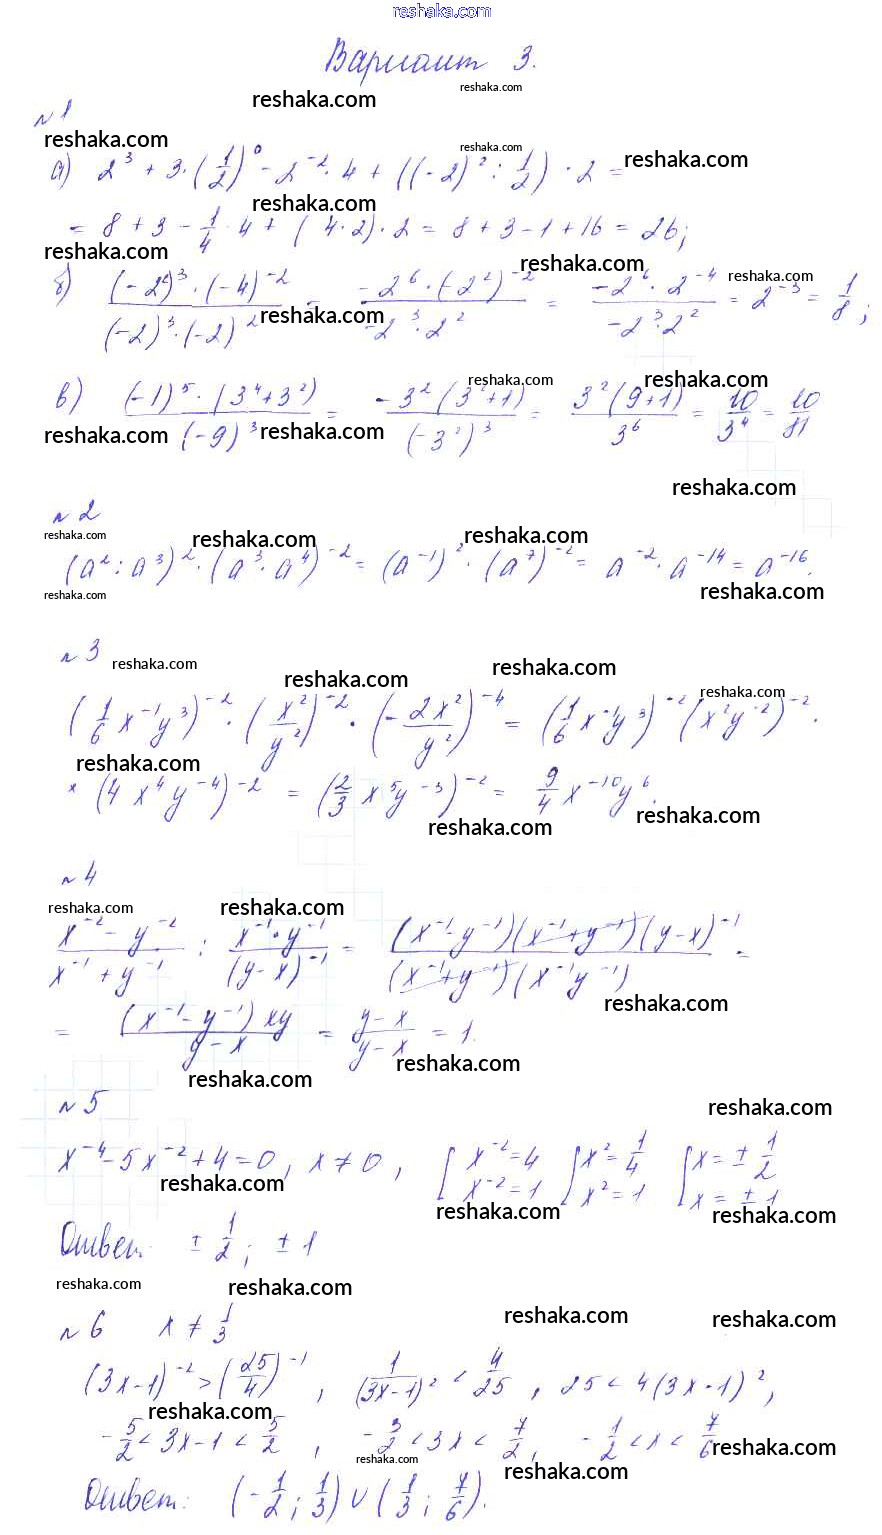 reshaka.com
Вариант 3.
reshaka.com reshaka.com
№ 1
reshaka.com reshaka.com reshaka.com
а) 2³ + 3·(1/2)⁰ - 2⁻²·4 + ((-2)² : 1/2)·2 =
reshaka.com
= 8 + 3 - 1/4·4 + (4·2)·2 = 8 + 3 - 1 + 16 = 26;
reshaka.com reshaka.com reshaka.com
б) (-2²)³·(-4)⁻² / (-2)³·(-2)² = -2⁶·(-2²)⁻² / -2³·2² = -2⁶·2⁻⁴ / -2³·2² = 2⁻³ = 1/8;
reshaka.com
reshaka.com reshaka.com
в) (-1)⁵·(3⁴+3²) / (-9)³ = -3²(3²+1) / (-3²)³ = 3²(9+1) / 3⁶ = 10/3⁴ = 10/81
reshaka.com reshaka.com
reshaka.com
№ 2
reshaka.com reshaka.com reshaka.com
(a² : a³)²·(a³·a⁴)⁻² = (a⁻¹)²·(a⁷)⁻² = a⁻²·a⁻¹⁴ = a⁻¹⁶.
reshaka.com reshaka.com
№ 3
reshaka.com reshaka.com reshaka.com
reshaka.com
(1/6 x⁻¹y³)⁻²·(x²/y²)⁻²·(-2x²/y²)⁻⁴ = (1/6 x⁻¹y³)⁻²(x²y⁻²)⁻²·
reshaka.com
× (4x⁴y⁻⁴)⁻² = (2/3 x⁵y⁻³)⁻² = 9/4 x⁻¹⁰y⁶.
reshaka.com reshaka.com
№ 4
reshaka.com reshaka.com
x⁻² - y⁻² / x⁻¹ + y⁻¹ : x⁻¹·y⁻¹ / (y-x)⁻¹ = (x⁻¹-y⁻¹)(x⁻¹+y⁻¹)(y-x)⁻¹ / (x⁻¹+y⁻¹)(x⁻¹y⁻¹) =
reshaka.com
= (x⁻¹-y⁻¹)xy / y-x = y-x / y-x = 1.
reshaka.com reshaka.com
№ 5
reshaka.com
x⁻⁴ - 5x⁻² + 4 = 0, x ≠ 0, [x⁻² = 4 x⁻² = 1 [x² = 1/4 x² = 1 [x = ± 1/2 x = ± 1
reshaka.com reshaka.com reshaka.com
Ответ: ± 1/2; ± 1
reshaka.com reshaka.com
№ 6 x ≠ 1/3
reshaka.com reshaka.com
(3x-1)⁻² > (25/4)⁻¹, 1/(3x-1)² < 4/25, 25 < 4(3x-1)²,
reshaka.com
-5/2 < 3x-1 < 5/2, -3/2 < 3x < 7/2, -1/2 < x < 7/6
reshaka.com reshaka.com reshaka.com
Ответ: (-1/2; 1/3) ∪ (1/3; 7/6).